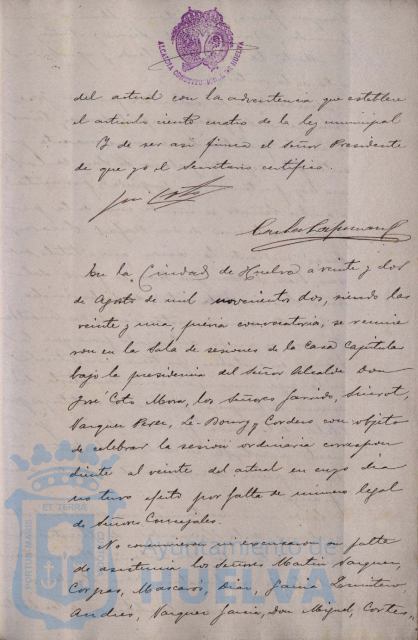 ALCALDIA CONSTITUCIONAL DE HUELVA
del actual con la advertencia que establece
el artículo ciento cuatro de la ley municipal
Y de ser así firma el Señor Presidente
de que yo el Secretario certifico.
José Coto
En la Ciudad de Huelva a veinte y dos
de Agosto de mil novecientos dos, siendo las
veinte y una, previa convocatoria, se reunie
ron en la Sala de sesiones de la Casa Capitular
bajo la presidencia del Señor Alcalde Don
José Coto Mora, los Señores Garrido,
Vazquez Perez, Le Bourg y Cordero con objeto
de celebrar la sesión ordinaria correspon
diente al veinte del actual en cuyo dia
no tuvo efecto por falta de número legal
de Señores Concejales.
No concurrieron ni excusaron su falta
de asistencia los Señores Martin Vazquez,
Corpas, Mascarós, Diaz, Garcia
Andrés, Vazquez Garcia, Don Miguel, Cortes,
PORTUS MARIS ET TERRAE CUSTODIA
Ayuntamiento de
HUELVA